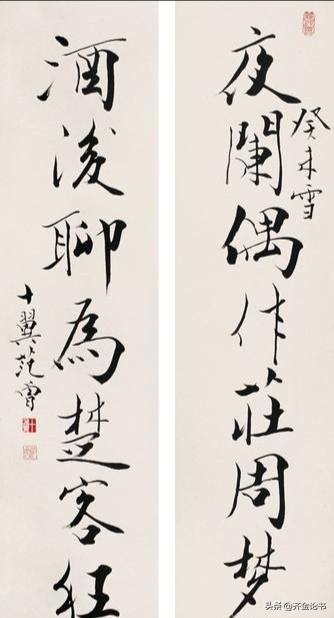 夜闌偶作莊周梦
癸未雪
酒後聊為楚客狂
十翼范曾
头条@齐金论书